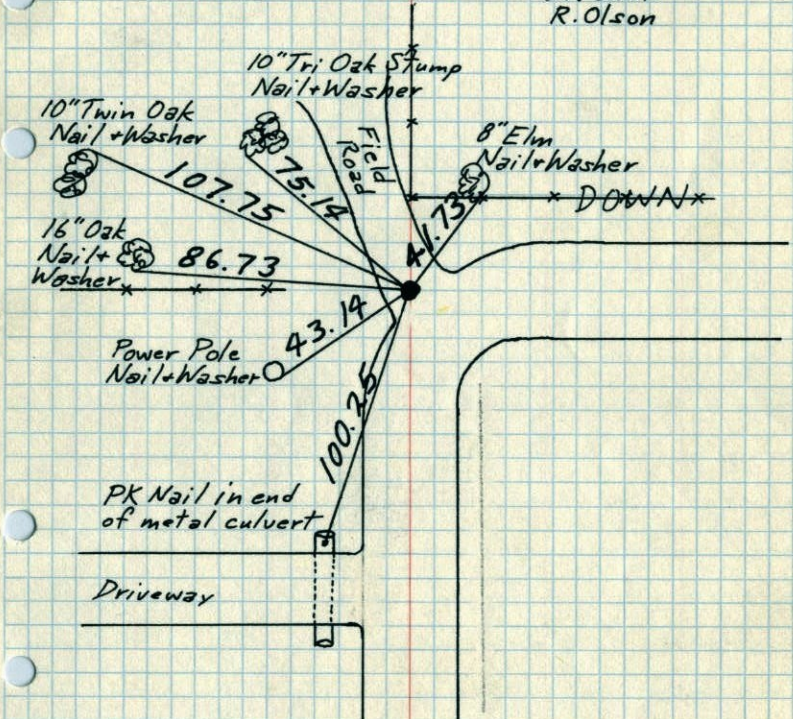 R. Olson
10" Tri Oak Stump
Nail + Washer
10" Twin Oak
Nail + Washer
Field
Road
8" Elm
Nail + Washer
107.75
75.14
41.73
DOWN
16" Oak
Nail +
Washer
86.73
43.14
Power Pole
Nail + Washer
100.25
PK Nail in end
of metal culvert
Driveway